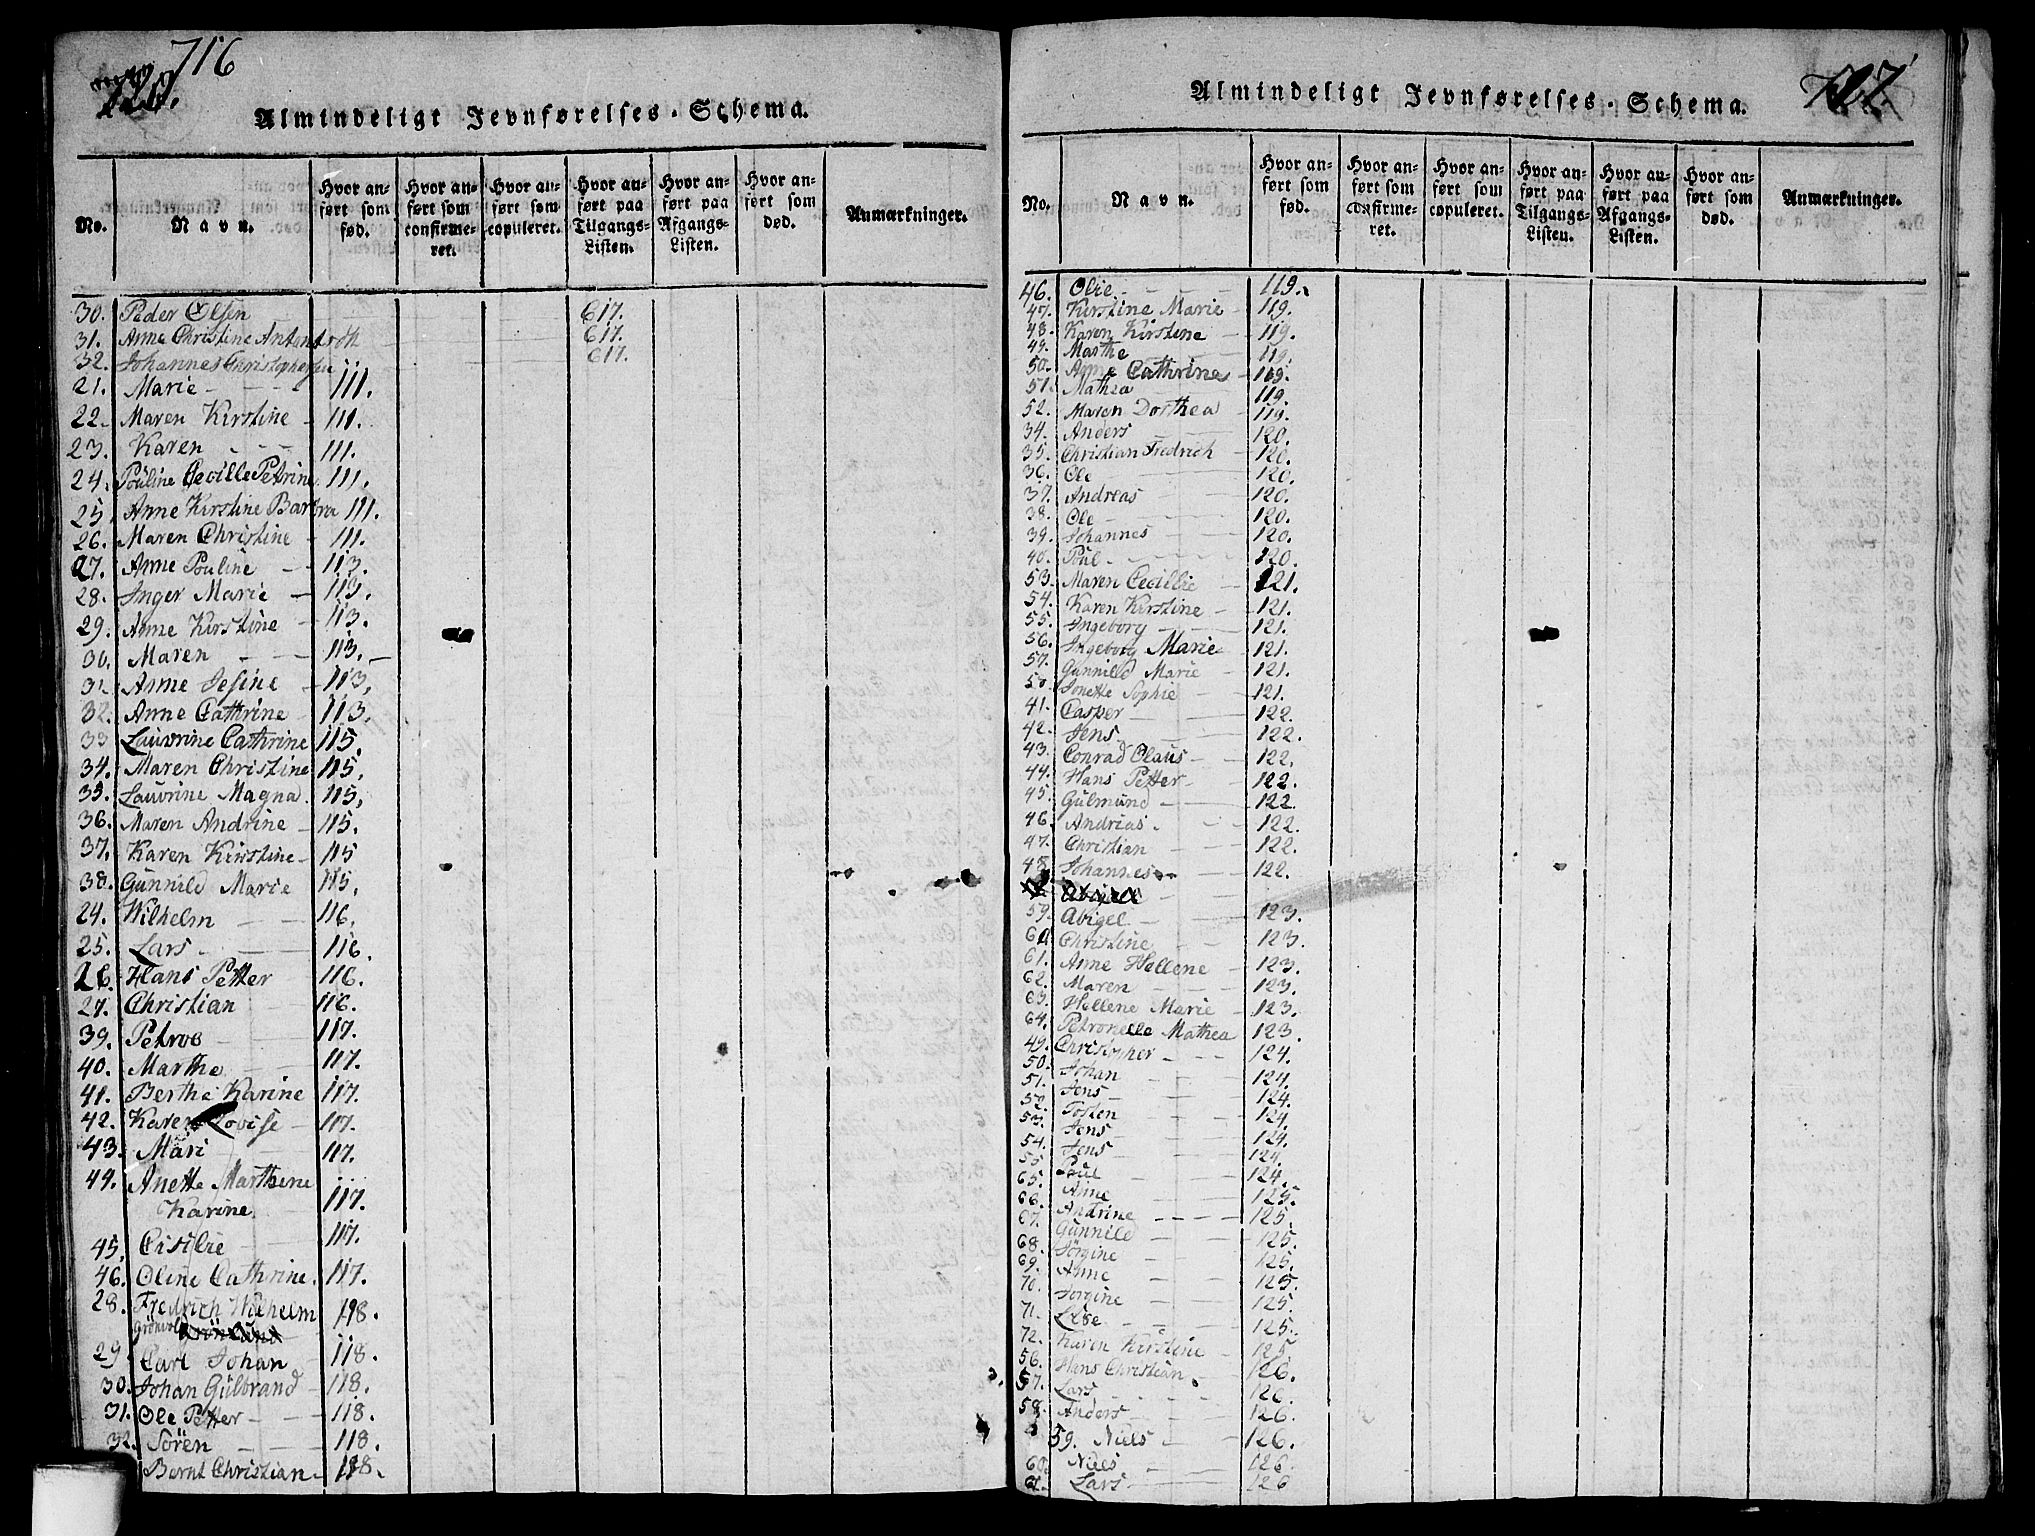 716
720.
Almindeligt Jevnførelses-Schema.
No.
Navn.
Hvor an-
ført som
fød.
Hvor an-
ført som
confirme-
ret.
Hvor an-
ført som
copuleret.
Hvor an-
ført paa
Tilgangs-
Listen.
Hvor an-
ført paa
Afgangs-
Listen.
Hvor an-
ført som
død.
Anmærkninger.
30. Peder Olsen 617.
31. Anne Christine Antonsdøth 617.
32. Johannes Christophersen 617.
21. Marie 111.
22. Maren Kirstine 111.
23. Karen 111.
24. Pouline Cecille Petrine 111.
25. Anne Kirstine Barbra 111.
26. Maren Christine 111.
27. Anne Pouline 113.
28. Inger Marie 113.
29. Anne Kirstine 113.
30. Maren 113.
31. Anne Jesine 113.
32. Anne Cathrine 113.
33 Lauvrine Cathrine 115.
34. Maren Christine 115.
35. Lauvrine Magna. 115.
36. Maren Andrine 115.
37. Karen Kirstine 115
38. Gunnild Marie 115.
24. Wilhelm 116.
25. Lars 116.
26. Hans Petter 116.
27. Christian 116.
39. Petroe 117.
40. Marthe 117.
41. Berthe Karine 117.
42. Karen Lovise 117.
43. Mari 117.
44. Anette Marthine
Karine 117.
45. Cisilie 117.
46. Oline Cathrine. 117.
28. Fredrich Wilhelm 118.
Grönvold
29. Carl Johan 118.
30. Johan Gulbrand 118.
31. Ole Petter 118.
32. Sören 118.
Bernt Christian 118.
Almindeligt Jevnførelses-Schema.
No.
Navn.
Hvor an-
ført som
fød.
Hvor an-
ført som
confirme-
ret.
Hvor an-
ført som
copuleret.
Hvor an-
ført paa
Tilgangs-
Listen.
Hvor an-
ført paa
Afgangs-
Listen.
Hvor an-
ført som
død.
Anmærkninger.
46. Olie 119.
47. Kirstine Marie 119.
48. Karen Kirstine 119.
49. Marthe 119.
50. Anne Cathrine 119.
51. Mathea 119.
52. Maren Dorthea 119.
34. Anders 120.
35. Christian Fredrich 120.
36. Ole 120.
37. Andreas 120.
38. Ole 120.
39. Johannes 120.
40. Poul 120.
53. Maren Cecillie 121.
54. Karen Kirstine 121.
55. Ingeborg 121.
56. Ingeborg Marie 121.
57. Gunnild Marie 121.
58. Jonette Sophie 121.
41. Casper 122.
42. Jens 122.
43. Conrad Claus 122.
44. Hans Petter 122.
45. Gulmund 122.
46. Andrias. 122.
47. Christian 122.
48. Johannes 122.
59. Abigel 123.
60 Christine 123.
61. Anne Hellene 123.
62. Maren 123.
63. Hellene Marie 123.
64. Petronelle Mathea 123.
49. Christopher 124.
50. Johan 124.
51. Jens 124.
52. Tosten 124.
53. Jens 124.
54. Jens 124.
55 Paul 124.
65. Anne 125.
66. Andrine 125.
67. Gunnild 125.
68. Jörgine 125.
69. Anne 125.
70. Jorgine 125.
71. Lise 125.
72. Karen Kirstine 125.
56. Hans Christian 126.
57. Lars 126.
58. Anders 126.
59. Niels 126.
60. Niels 126.
61. Lars 126